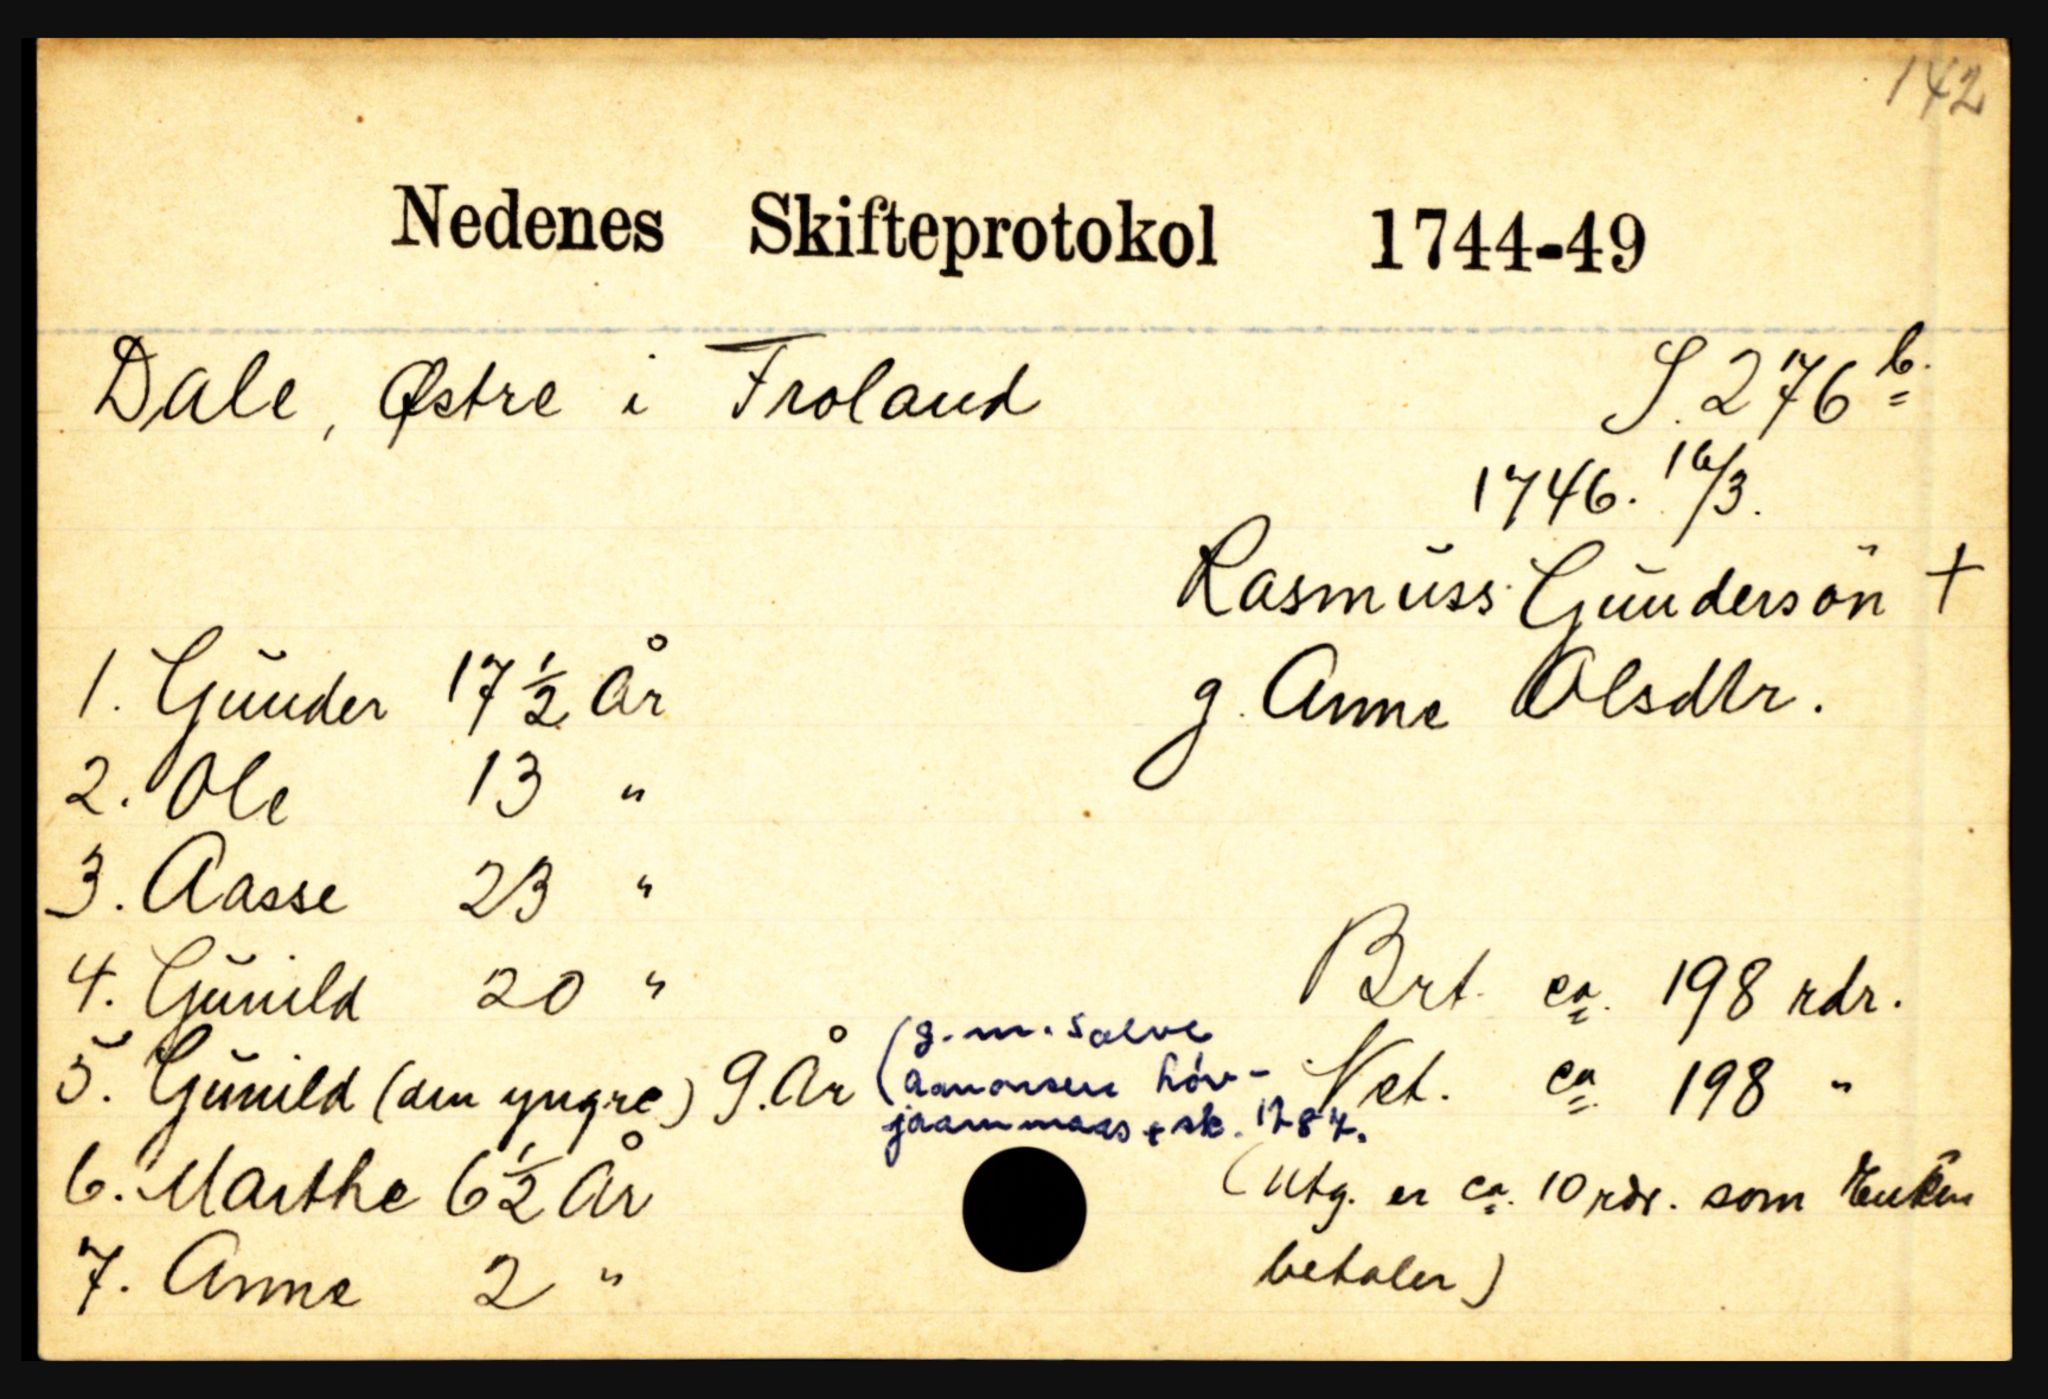 142
Nedenes Skifteprotokol 1744-49
Dale, Østre i Froland
S. 276 b.
1746. 16/3.
Rasmuss Gundersøn +
g. Anne Olsdtr.
1. Gunder 17 ½ År
2. Ole 13 "
3. Aasse 23 "
4. Gunild 20 "
5. Gunild (den yngre) 9. År
(g. m. Salve
Aanonsen Höv-
jaammaas + sk. 1784.
6. Marthe 6 ½ År
7. Anne 2 "
Brt. ca. 198 rdr.
Net. ca. 198 "
(Utg. er ca. 10 rdr. som Enken
betaler)